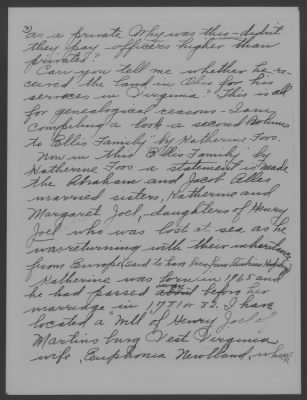 3) as a private Why was this - didn't
they pay officers higher than
privates?
Can you tell me whether he re-
ceived the land in Ohio for his
services in Virginia? This is all
for genealogical reasons - I am
compiling a book a second Volume
to "Ellis Family" by Katherine Foos.
Now in this Ellis Family by
Katherine Foos a statement is made
the Abraham and Jacob Ellis
married sisters, Katherine and
Margaret Joel, daughters of Henry
Joel who was lost at sea as he
was returning with their inheritance
from Europe (said to have been from
Katherine was born in 1765 and
he had passed away before his
marriage in 1781 or 82. I have
located a Will of Henry Joel of
Martinsburg West Virginia
wife, Euphonia Newlland, which